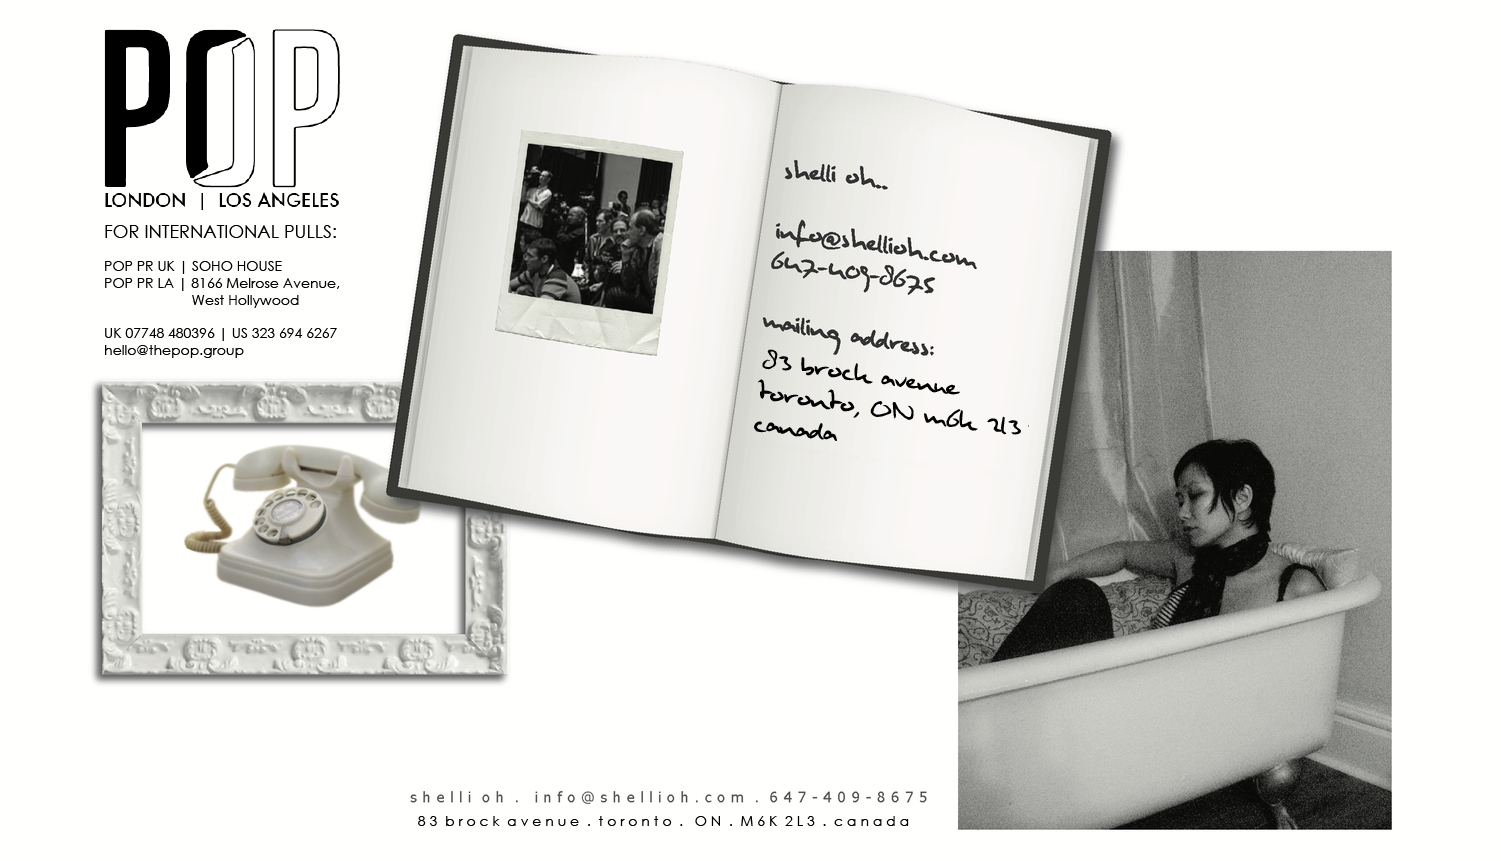 POP
LONDON | LOS ANGELES
FOR INTERNATIONAL PULLS:
POP PR UK | SOHO HOUSE
POP PR LA | 8166 Melrose Avenue,
West Hollywood
UK 07748 480396 | US 323 694 6267
hello@thepop.group
shelli oh..
info@shellioh.com
647-409-8675
mailing address:
83 brock avenue
toronto, ON m6k 2l3
canada
shelli oh . info@shellioh.com . 647-409-8675
83 brock avenue . toronto . ON . M6K 2L3 . canada